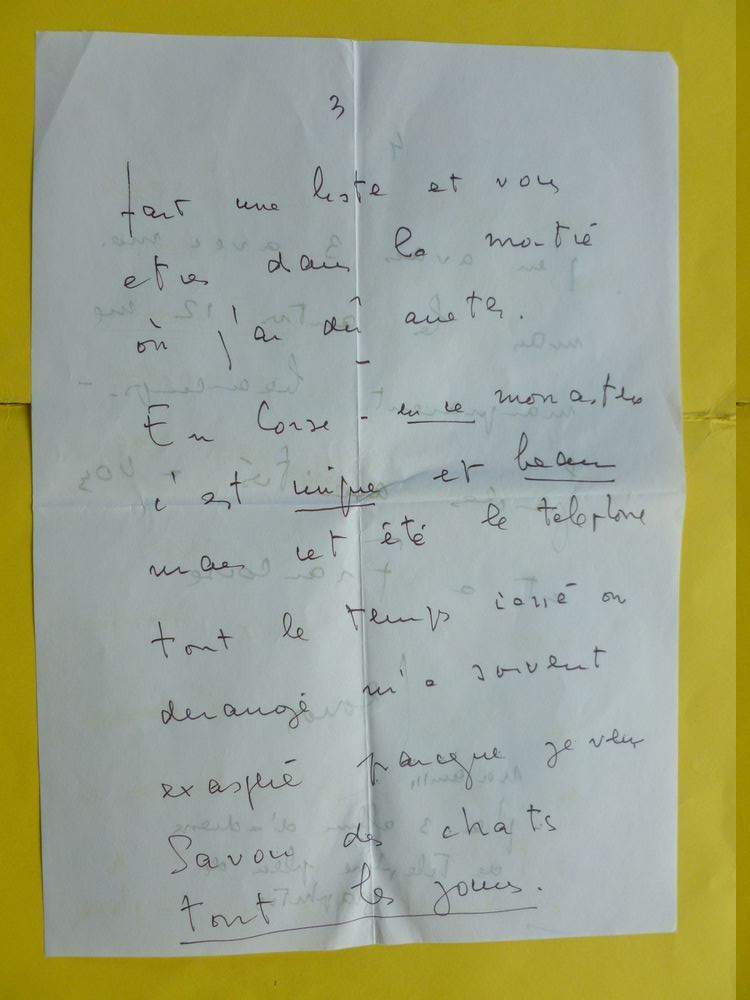 3
fait une liste et vous
etes dans la moitié
où j'ai dû arreter.
En Corse - en ce monastere
c'est unique et beau
mais cet été le telephone
tout le temps cassé ou
derangé m'a souvent
exaspéré parceque je veux
Savoir des chats
tout les jours.